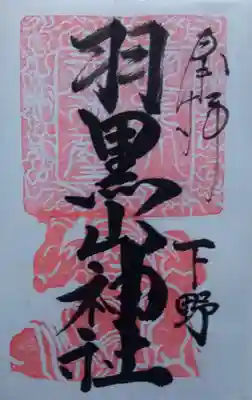 奉拝
羽黒山神社
下野